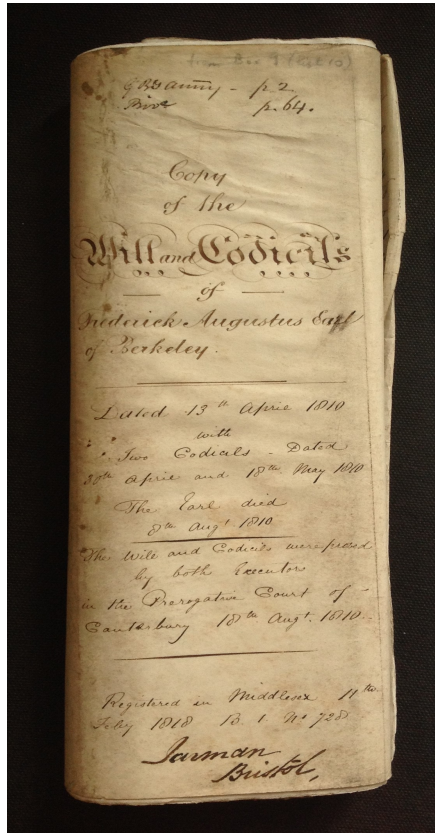 from Box 9
p. 2
p. 64.
Copy
of the
Will and Codicils
of
Frederick Augustus Earl
of Berkeley.
Dated 13th April 1810
with
" " Two Codicils - Dated
30th April and 18th May 1810
The Earl died
8th Augt 1810
The Will and Codicils were proved
by both Executors
in the Prerogative Court of
Canterbury 18th Augt. 1810.
Registered in Middlesex 11th
Feby 1818 B. 1. No 728
Jarman
Bristol,